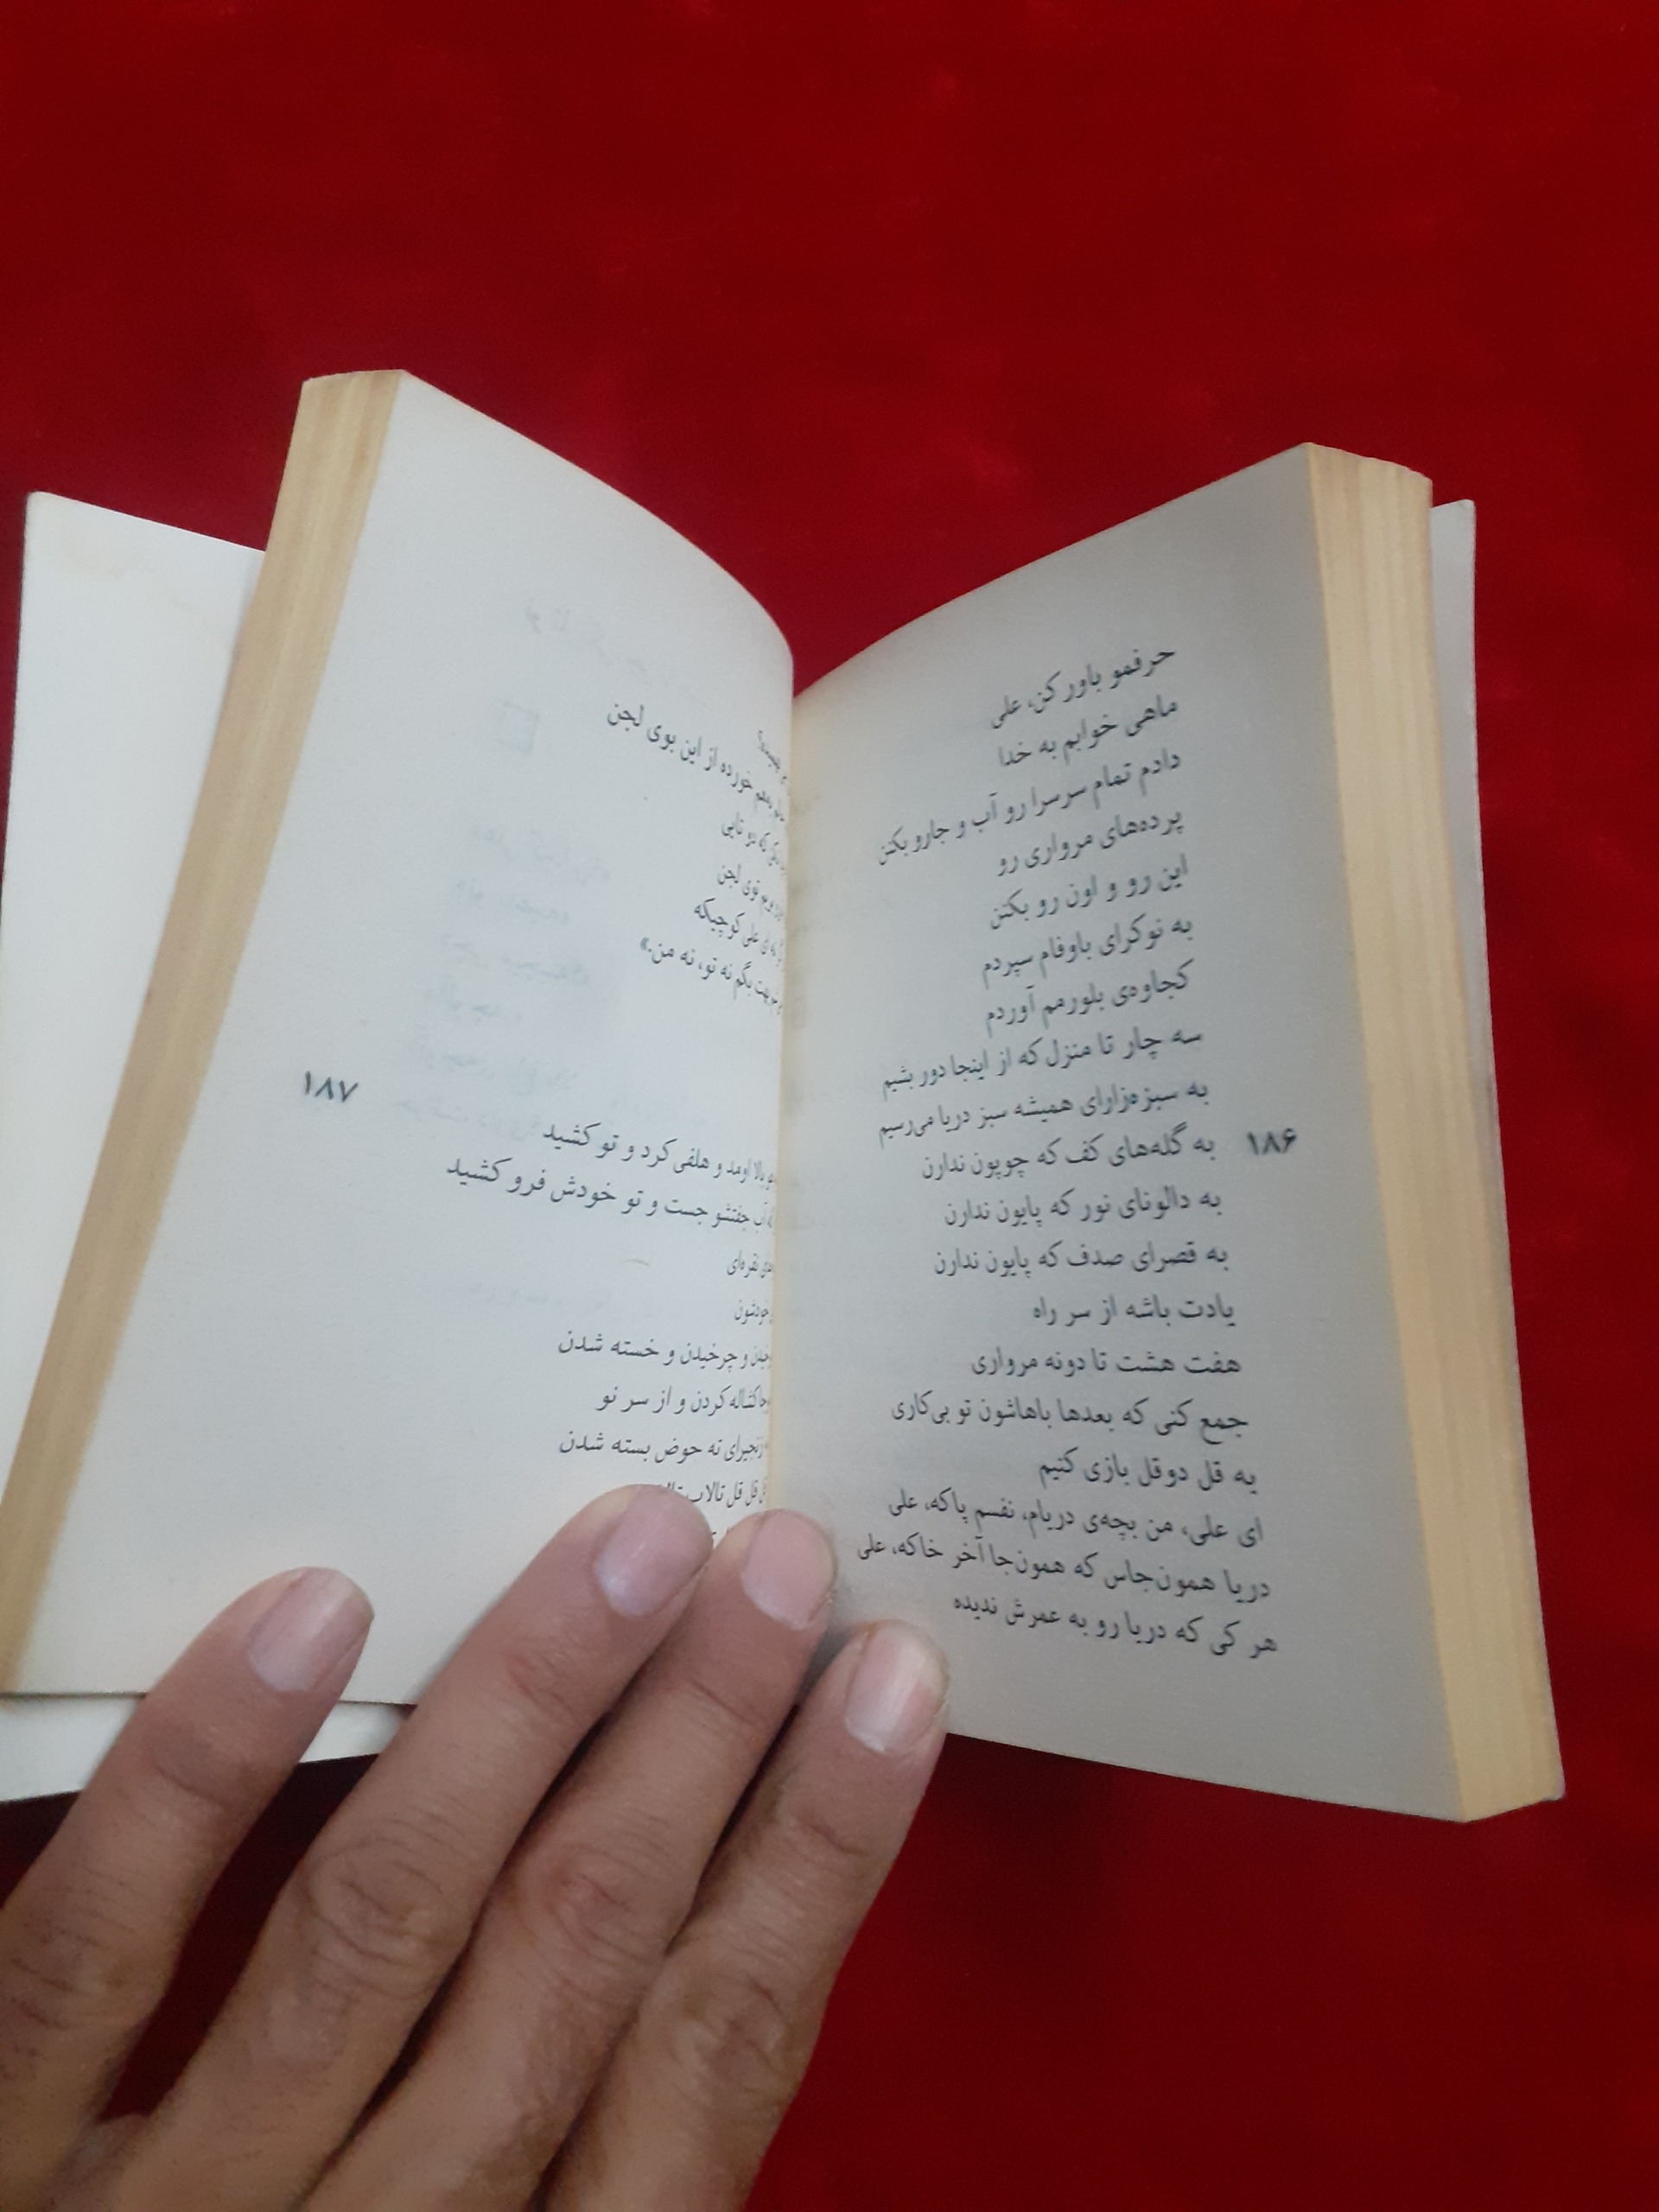 حرفمو باور کن، علی
ماهی خوابم به خدا
دادم تمام سرسرا رو آب و جارو بکنن
پرده‌های مرواری رو
این رو و اون رو بکنن
به نوکرای باوفام سپردم
کجاوه‌ی بلورمم آوردم
سه چار تا منزل که از اینجا دور بشیم
به سبزه‌زارای همیشه سبز دریا می‌رسیم
به گله‌های کف که چوپون ندارن
به دالونای نور که پایون ندارن
به قصرای صدف که پایون ندارن
یادت باشه از سر راه
هفت هشت تا دونه مرواری
جمع کنی که بعدها باهاشون تو بی‌کاری
یه قل دوقل بازی کنیم
ای علی، من بچه‌ی دریام، نفسم پاکه، علی
دریا همون‌جاس که همون‌جا آخر خاکه، علی
هر کی که دریا رو به عمرش ندیده
۱۸۶
به‌هم خورده از این بوی لجن
که دو تایی
توی لجن
ای علی کوچیکه
بهت بگم نه تو، نه من.»
بالا اومد و هلفی کرد و تو کشید
آب جفتشو جست و تو خودش فرو کشید
نقره‌ای
خودشون
و چرخیدن و خسته شدن
کردن و از سر نو
زنجیرای ته حوض بسته شدن
قل قل تالاب
۱۸۷